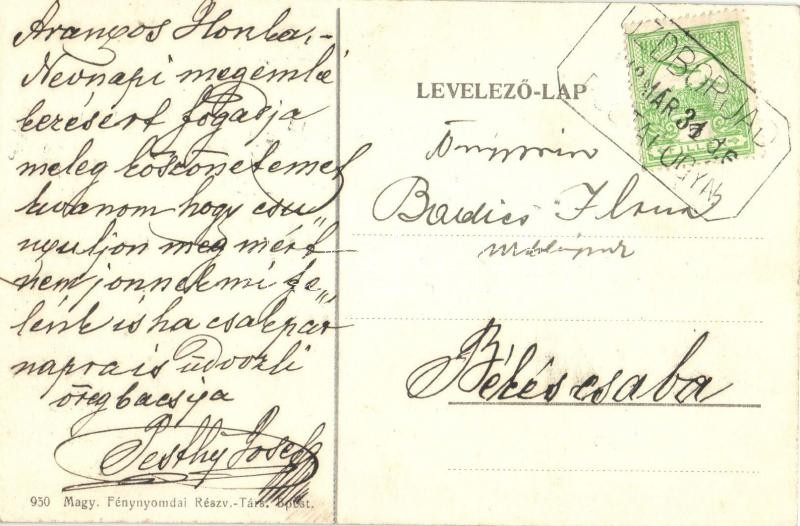 Aranyos Ilonka,-
Nevnapi megemlé
kezésért fogadja
meleg köszönetemet
kivanom hogy csu„
nyuljon meg mért
nem jönnek mi fe„
lénk is ha csak par
napra is üdvözli
öregbacsija
Pesthy Josef
930 Magy. Fénynyomdai Részv.-Társ. Bpest.
LEVELEZŐ-LAP
MAGYAR KIR. POSTA
FILLÉR
MÁR 31
Badics Ilona
Békéscsaba